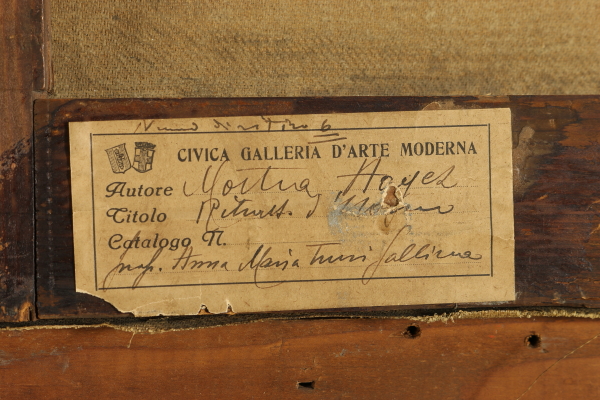 Numero di ritiro 6
CIVICA GALLERIA D'ARTE MODERNA
Autore Mostra Hayez
Titolo Ritratto d'
Catalogo N.
prof. Anna Maria Turri Gallina